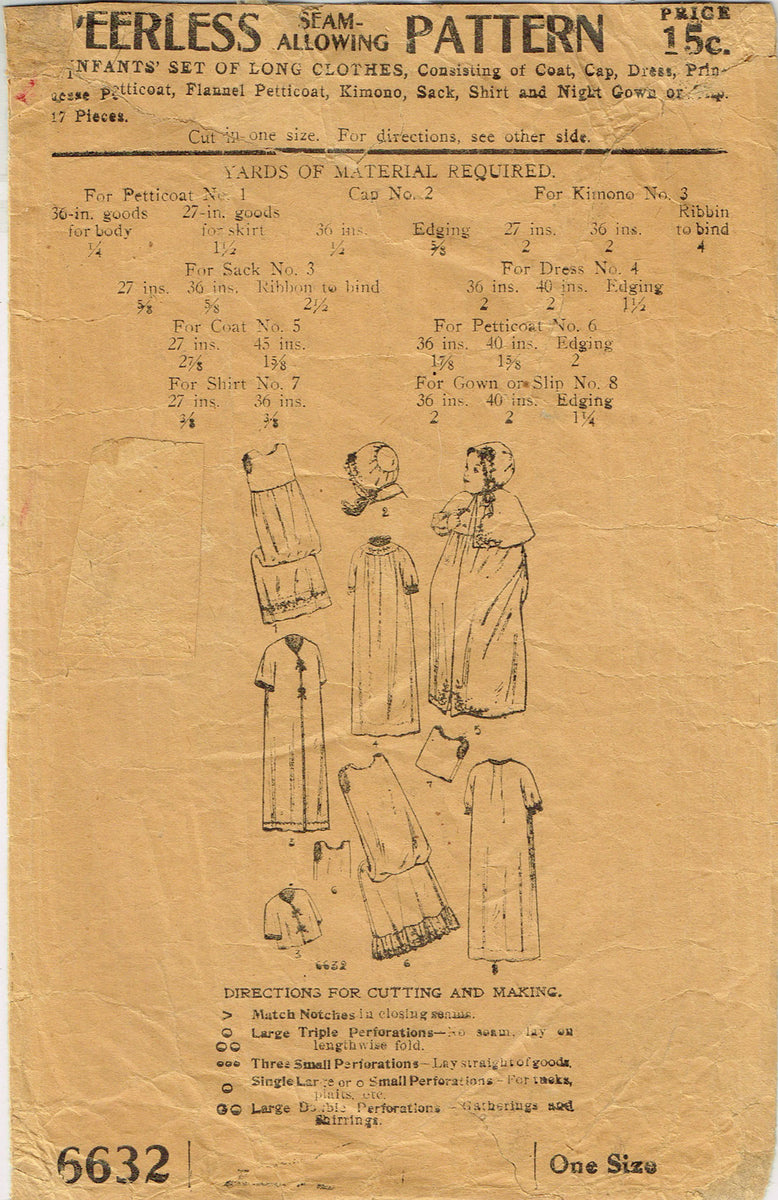 PEERLESS SEAM-ALLOWING PATTERN PRICE 15c.
INFANTS' SET OF LONG CLOTHES, Consisting of Coat, Cap, Dress, Prin-
cesse Petticoat, Flannel Petticoat, Kimono, Sack, Shirt and Night Gown or Slip.
17 Pieces.
Cut in one size. For directions, see other side.
YARDS OF MATERIAL REQUIRED.
For Petticoat No. 1 Cap No. 2 For Kimono No. 3
36-in. goods 27-in. goods Ribbin
for body for skirt 36 ins. Edging 27 ins. 36 ins. to bind
1/4 1 1/2 1/2 5/8 2 2 4
For Sack No. 3 For Dress No. 4
27 ins. 36 ins. Ribbon to bind 36 ins. 40 ins. Edging
5/8 5/8 2 1/2 2 2 1 1/2
For Coat No. 5 For Petticoat No. 6
27 ins. 45 ins. 36 ins. 40 ins. Edging
2 7/8 1 5/8 1 7/8 1 5/8 2
For Shirt No. 7 For Gown or Slip No. 8
27 ins. 36 ins. 36 ins. 40 ins. Edging
3/8 3/8 2 2 1 1/4
2
1
4
5
7
3
6
3
6
8
6632
DIRECTIONS FOR CUTTING AND MAKING.
> Match Notches in closing seams.
Large Triple Perforations—No seam, lay on
lengthwise fold.
ooo Three Small Perforations—Lay straight of goods.
Single Large or o Small Perforations—For tucks,
plaits, etc.
Large Double Perforations—Gatherings and
Shirrings.
6632 One Size